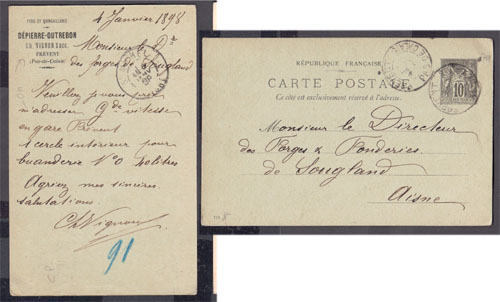 FERS ET QUINCAILLERIE
DÉPIERRE-OUTREBON
CH. VIGNON Succ.
FRÉVENT
(Pas-de-Calais)
4 Janvier 1898
Monsieur le Dr
des forges de Sougland
Veuillez je vous prie
m'adresser Gde vitesse
en gare Frévent
1 cercle intérieur pour
buanderie No 40 litres
Agréez mes sincères
salutations.
Ch Vignon
91
RÉPUBLIQUE FRANÇAISE
CARTE POSTALE
Ce côté est exclusivement réservé à l'adresse.
10
Monsieur le Directeur
des Forges & Fonderies
de Sougland
Aisne